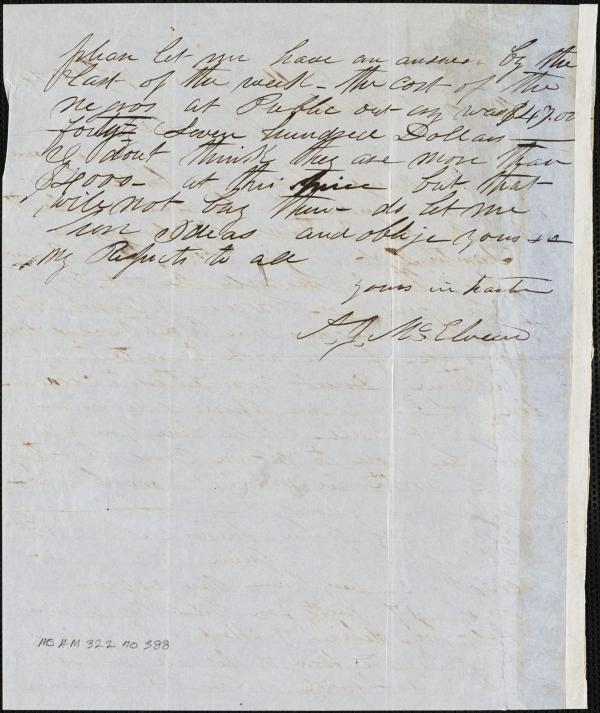 please let me have an answer by the
last of the week - the cost of the
negros at Public out cry was $4700
forty Seven hundred Dollars
I dont think they are more than
$4000 - at this price but that
will not buy them - do let me
Ideas and oblige yours &c
my Respects to all
yours in haste
A. J. McElveen
MS AM 322 NO 388